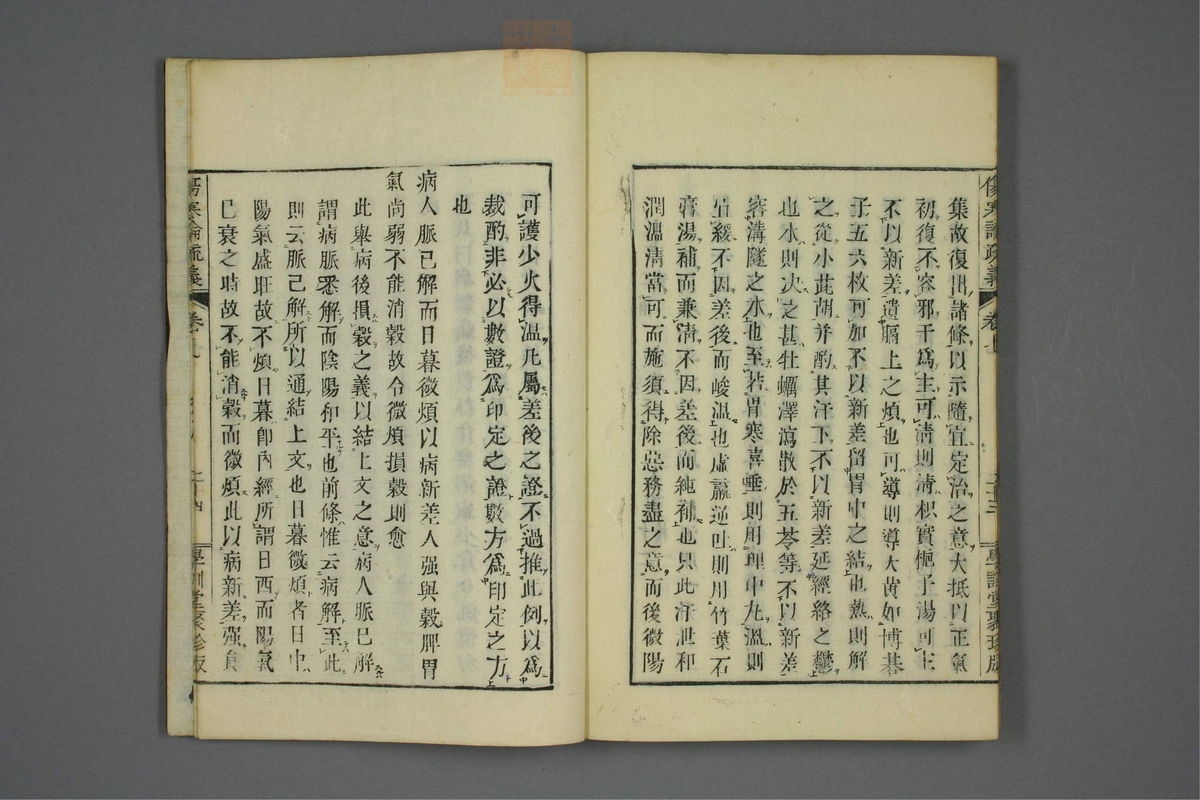 集故復出諸條以示隨宜定治之意大抵以正氣
初復不容邪干爲主可淸則淸枳實梔子湯可主
不以新差遺膈上之煩也可導則導大黃如博碁
子五六枚可加不以新差留胃中之結也熱則解
之從小茈胡并酌其汗下不以新差延經絡之鬱
也水則決之甚牡蠣澤瀉散於五苓等不以新差
容溝隧之水也至若胃寒喜唾則用理中丸溫則
宜緩不因差後而峻溫也虛羸逆吐則用竹葉石
膏湯補而兼淸不因差後而純補也只此汗泄和
潤溫淸當可而施須得除惡務盡之意而後微陽
可護少火得溫凡屬差後之證不過推此例以爲
裁酌非必以數證爲印定之證數方爲印定之方
也
病人脈已解而日暮微煩以病新差人强與穀脾胃
氣尚弱不能消穀故令微煩損穀則愈
此舉病後損穀之義以結上文之意病人脈已解
謂病脈悉解而陰陽和平也前條惟云病解至此
則云脈已解所以通結上文也日暮微煩者日中
陽氣盛旺故不煩日暮卽內經所謂日西而陽氣
已衰之時故不能消穀而微煩此以病新差强食
傷寒論疏義
學訓堂聚珍版